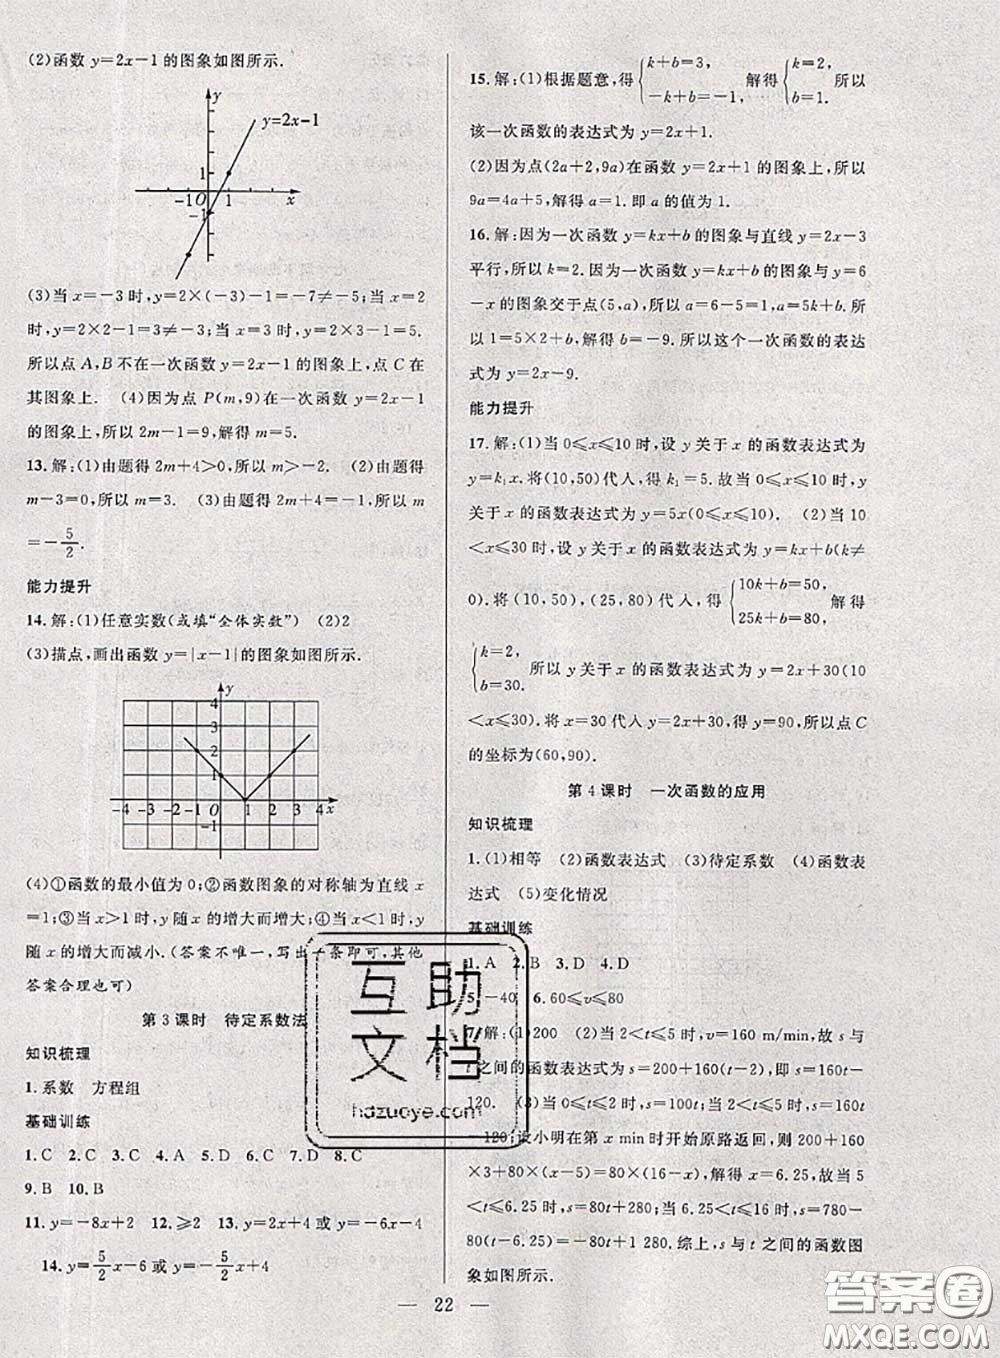 (2)函数 y=2x-1 的图象如图所示.
y
y=2x-1
1
-1 O 1 x
-1
(3)当 x=-3 时,y=2×(-3)-1=-7≠-5;当 x=2
时,y=2×2-1=3≠-3;当 x=3 时,y=2×3-1=5.
所以点 A,B 不在一次函数 y=2x-1 的图象上,点 C 在
其图象上. (4)因为点 P(m,9)在一次函数 y=2x-1
的图象上,所以 2m-1=9,解得 m=5.
13.解:(1)由题得 2m+4>0,所以 m>-2. (2)由题得
m-3=0,所以 m=3. (3)由题得 2m+4=-1,所以 m
=-5/2.
能力提升
14.解:(1)任意实数(或填“全体实数”) (2)2
(3)描点,画出函数 y=|x-1|的图象如图所示.
y
4
3
2
1
-4 -3 -2 -1 O 1 2 3 4 x
-1
(4)①函数的最小值为 0;②函数图象的对称轴为直线 x
=1;③当 x>1 时,y 随 x 的增大而增大;④当 x<1 时,y
随 x 的增大而减小.(答案不唯一,写出一条即可,其他
答案合理也可)
第 3 课时 待定系数法
知识梳理
1.系数 方程组
基础训练
1.C 2.C 3.C 4.A 5.D 6.D 7.D 8.C
9.B 10.B
11.y=-8x+2 12.≥2 13.y=2x+4 或 y=-6x-4
14.y=5/2x-6 或 y=-5/2x+4
15.解:(1)根据题意,得{k+b=3, -k+b=-1, 解得{k=2, b=1. 所以
该一次函数的表达式为 y=2x+1.
(2)因为点(2a+2,9a)在函数 y=2x+1 的图象上,所以
9a=4a+5,解得 a=1.即 a 的值为 1.
16.解:因为一次函数 y=kx+b 的图象与直线 y=2x-3
平行,所以 k=2.因为一次函数 y=kx+b 的图象与 y=6
-x 的图象交于点(5,a),所以 a=6-5=1,a=5k+b.所
以 1=5×2+b.解得 b=-9.所以这个一次函数的表达
式为 y=2x-9.
能力提升
17.解:(1)当 0≤x≤10 时,设 y 关于 x 的函数表达式为
y=k₁x.将(10,50)代入,得 k₁=5.故当 0≤x≤10 时,y
关于 x 的函数表达式为 y=5x(0≤x≤10). (2)当 10
<x≤30 时,设 y 关于 x 的函数表达式为 y=kx+b(k≠
0).将(10,50),(25,80)代入,得{10k+b=50, 25k+b=80, 解得
{k=2, b=30. 所以 y 关于 x 的函数表达式为 y=2x+30(10
<x≤30).将 x=30 代入 y=2x+30,得 y=90,所以点 C
的坐标为(60,90).
第 4 课时 一次函数的应用
知识梳理
1.(1)相等 (2)函数表达式 (3)待定系数 (4)函数表
达式 (5)变化情况
基础训练
1.A 2.B 3.D 4.D
5.-40 6.60≤v≤80
7.解:(1)200 (2)当 2<t≤5 时,v=160 m/min,故 s 与
t 之间的函数表达式为 s=200+160(t-2),即 s=160t-
120. (3)当 0≤t≤2 时,s=100t;当 2<t≤5 时,s=160t
-120;设小明在第 x min 时开始原路返回,则 200+160
×3+80×(x-5)=80×(16-x),解得 x=6.25,所以当 5
<t≤6.25 时,s=80t+280;当 6.25<t≤16 时,s=780-
80(t-6.25)=-80t+1 280.综上,s 与 t 之间的函数图
象如图所示.
互助
文档
hdzuoye.com
— 22 —
答案圈
MXQE.COM